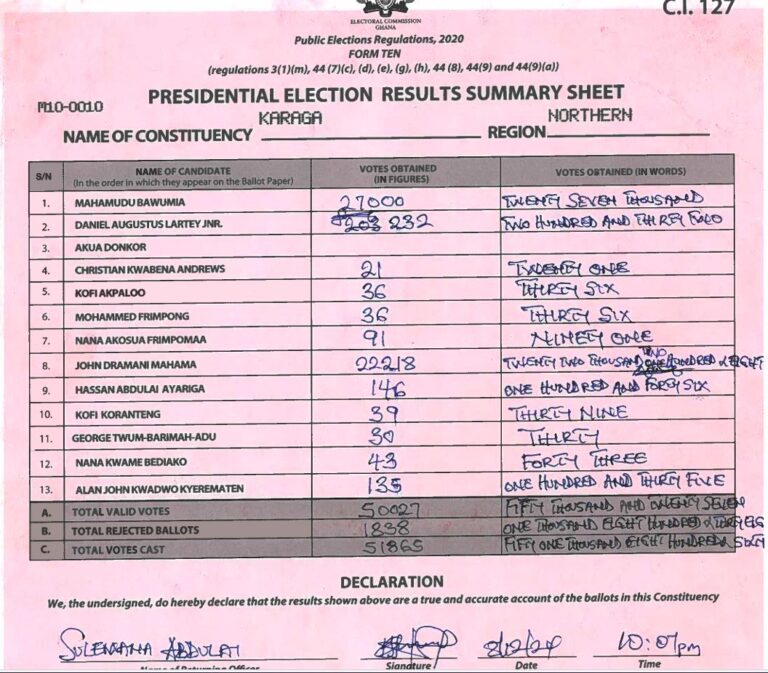 C.I. 127
ELECTORAL COMMISSION
GHANA
Public Elections Regulations, 2020
FORM TEN
(regulations 3(1)(m), 44 (7)(c), (d), (e), (g), (h), 44 (8), 44(9) and 44(9)(a))
M10-0010
PRESIDENTIAL ELECTION RESULTS SUMMARY SHEET
NAME OF CONSTITUENCY KARAGA REGION NORTHERN
S/N NAME OF CANDIDATE (In the order in which they appear on the Ballot Paper) VOTES OBTAINED (IN FIGURES) VOTES OBTAINED (IN WORDS)
1. MAHAMUDU BAWUMIA 27000 TWENTY SEVEN THOUSAND
2. DANIEL AUGUSTUS LARTEY JNR. 203 232 TWO HUNDRED AND THIRTY TWO
3. AKUA DONKOR
4. CHRISTIAN KWABENA ANDREWS 21 TWENTY ONE
5. KOFI AKPALOO 36 THIRTY SIX
6. MOHAMMED FRIMPONG 36 THIRTY SIX
7. NANA AKOSUA FRIMPOMAA 91 NINETY ONE
8. JOHN DRAMANI MAHAMA 22218 TWENTY TWO THOUSAND TWO HUNDRED & EIGHT
9. HASSAN ABDULAI AYARIGA 146 ONE HUNDRED AND FORTY SIX
10. KOFI KORANTENG 39 THIRTY NINE
11. GEORGE TWUM-BARIMAH-ADU 30 THIRTY
12. NANA KWAME BEDIAKO 43 FORTY THREE
13. ALAN JOHN KWADWO KYEREMATEN 135 ONE HUNDRED AND THIRTY FIVE
A. TOTAL VALID VOTES 50027 FIFTY THOUSAND AND TWENTY SEVEN
B. TOTAL REJECTED BALLOTS 1838 ONE THOUSAND EIGHT HUNDRED & THIRTY EIG
C. TOTAL VOTES CAST 51865 FIFTY ONE THOUSAND EIGHT HUNDRED & SIXTY
DECLARATION
We, the undersigned, do hereby declare that the results shown above are a true and accurate account of the ballots in this Constituency
SULEMANA ABDULAI 8/12/24 10:07pm
Name of Returning Officer Signature Date Time